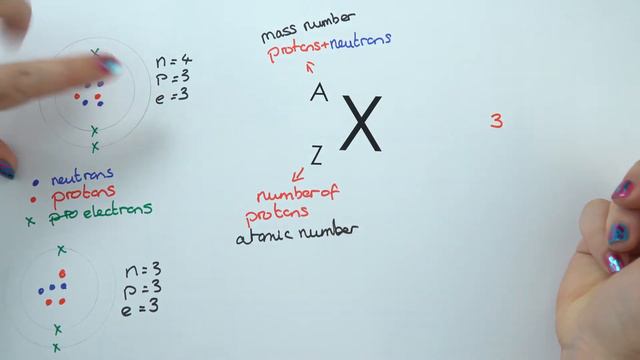 n=4
p=3
e=3
neutrons
protons
pro electrons
n=3
p=3
e=3
mass number
protons+neutrons
A
X
Z
number of
protons
atomic number
3